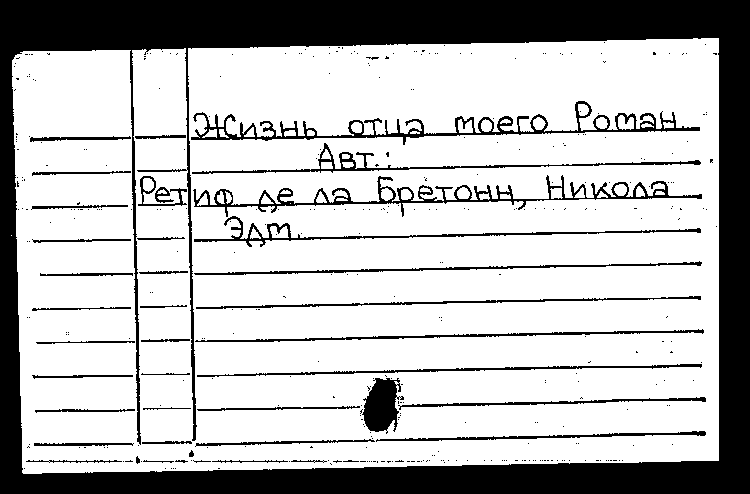 Жизнь отца моего Роман.
Авт.:
Ретиф де ла Бретонн, Никола
Эдм.